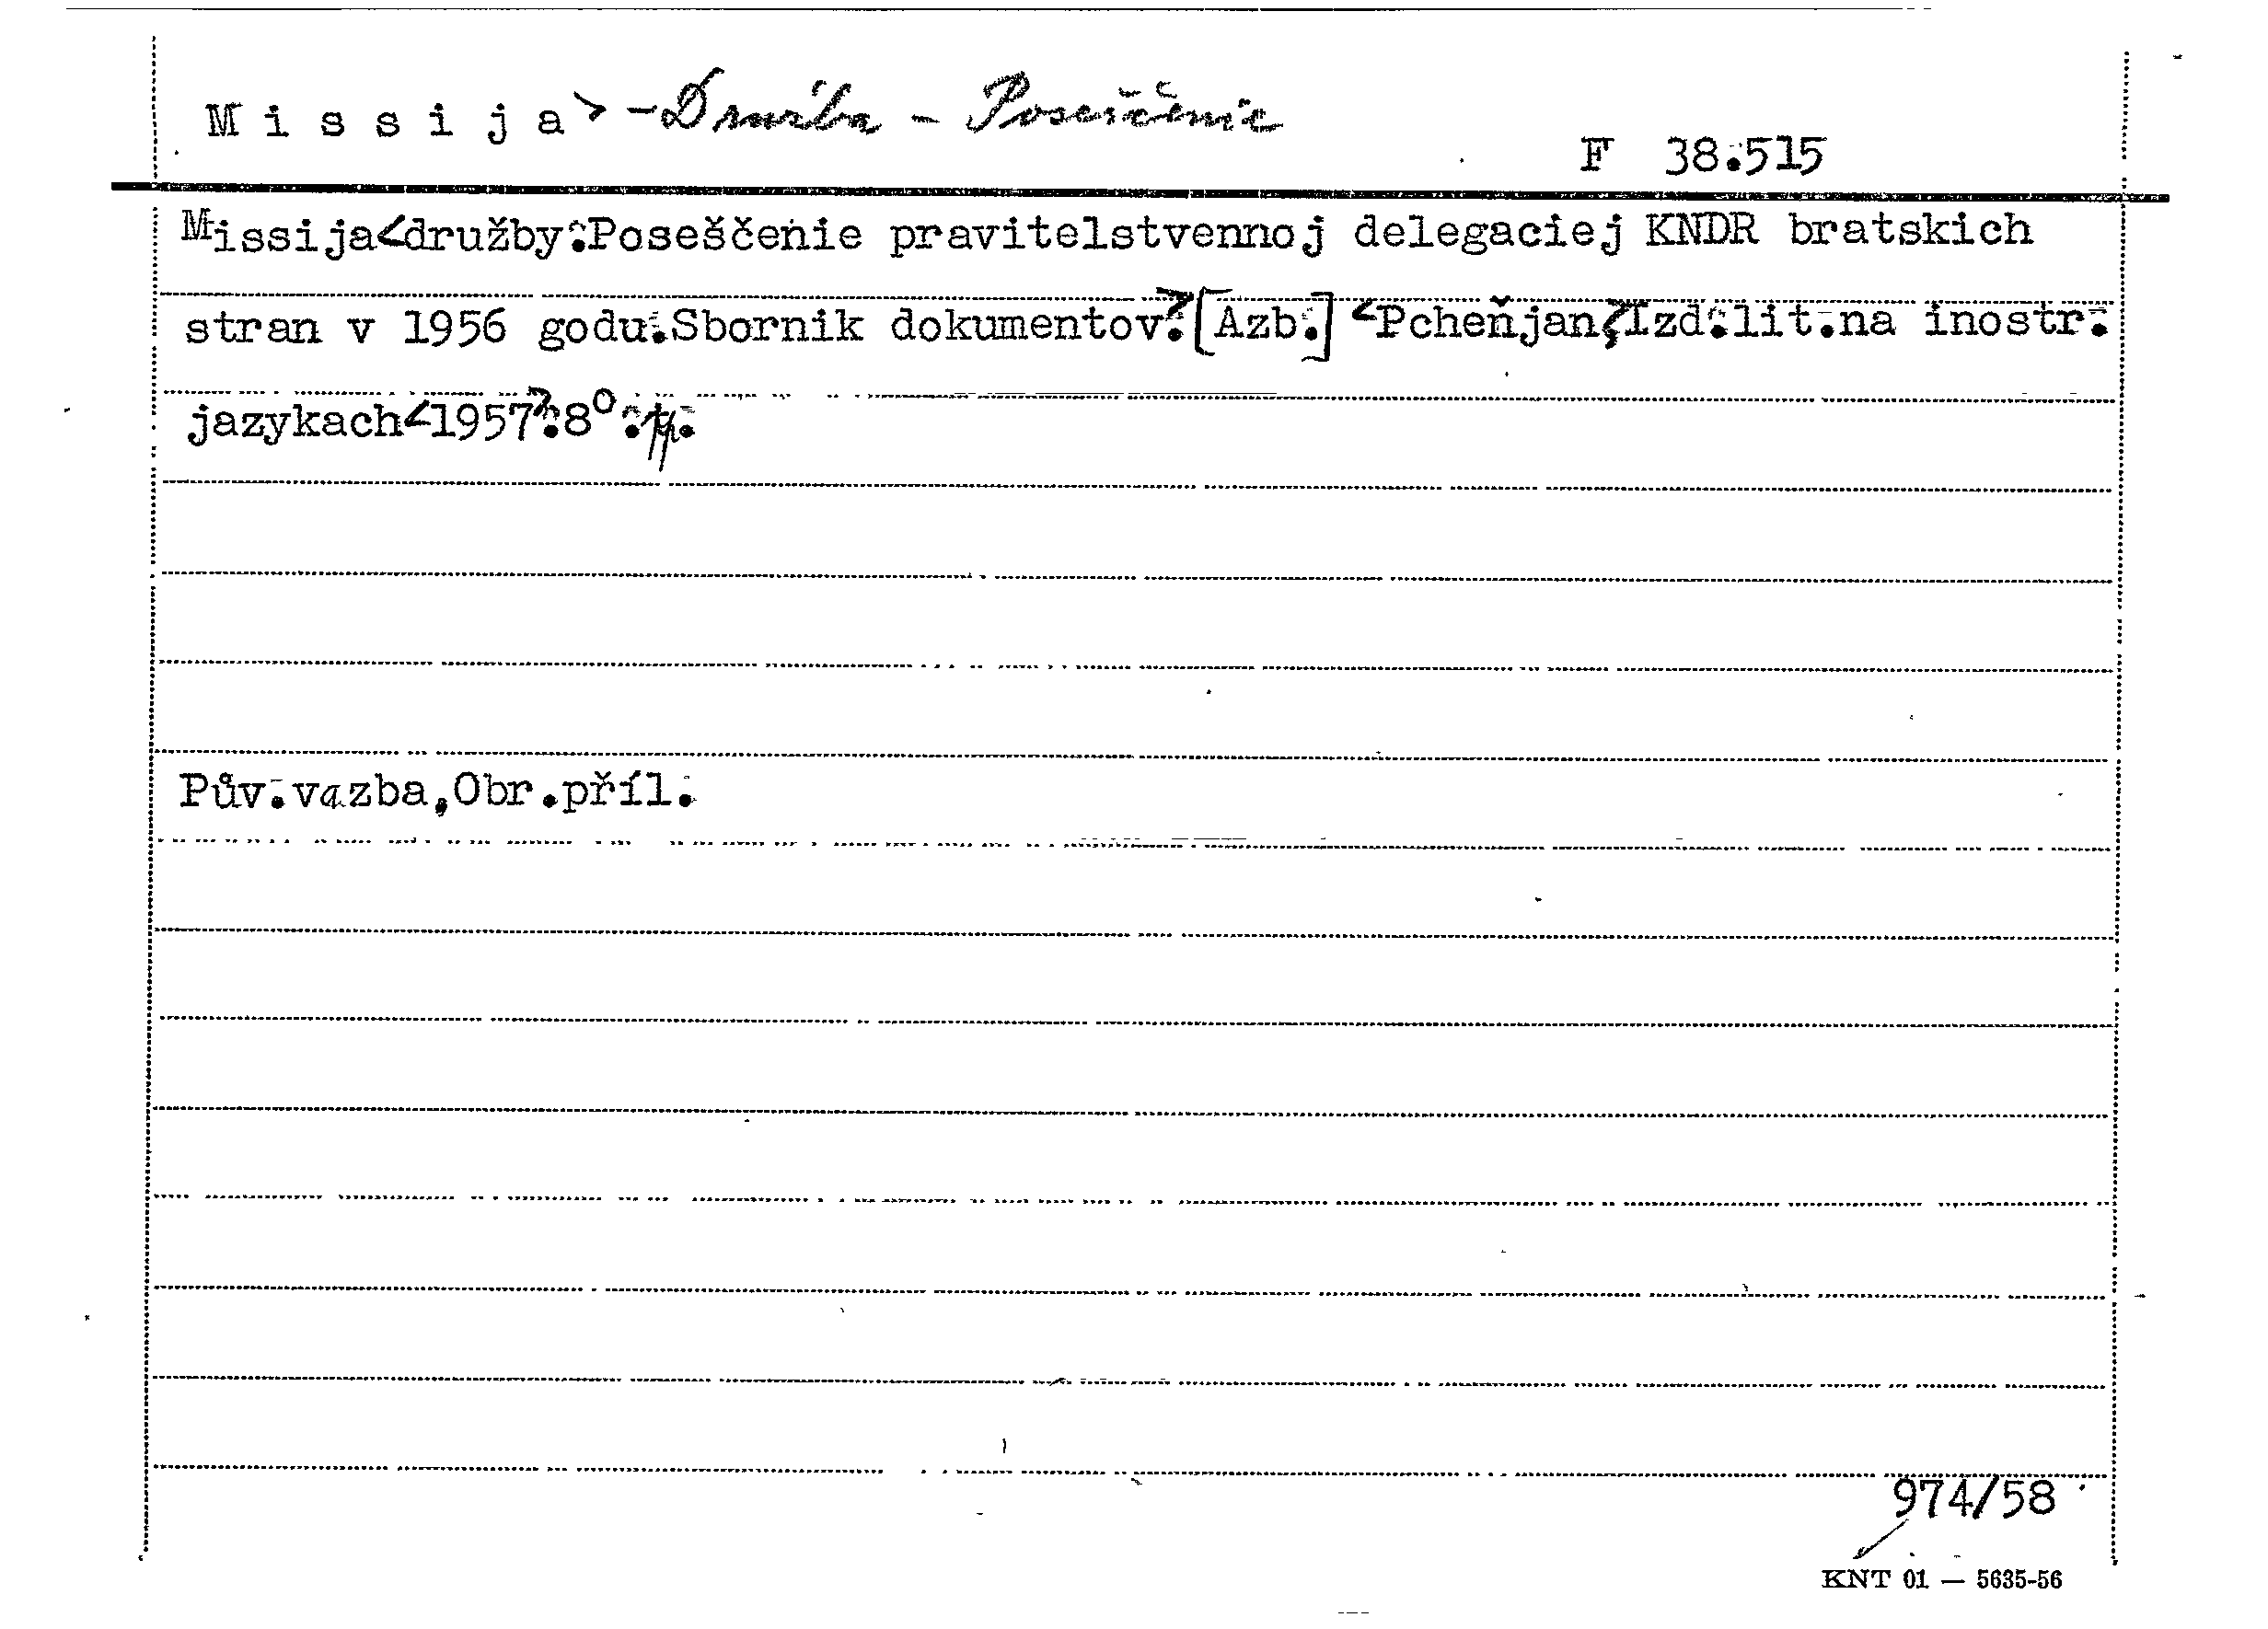 Missija - Družba - Poseščenie
F 38.515
Missija družby.Poseščenie pravitelstvennoj delegaciej KNDR bratskich
stran v 1956 godu.Sbornik dokumentov.[Azb.] Pcheňjan,Izd.lit.na inostr.
jazykach 1957.8°.
Pův.vazba,Obr.příl.
974/58
KNT 01 — 5635-56